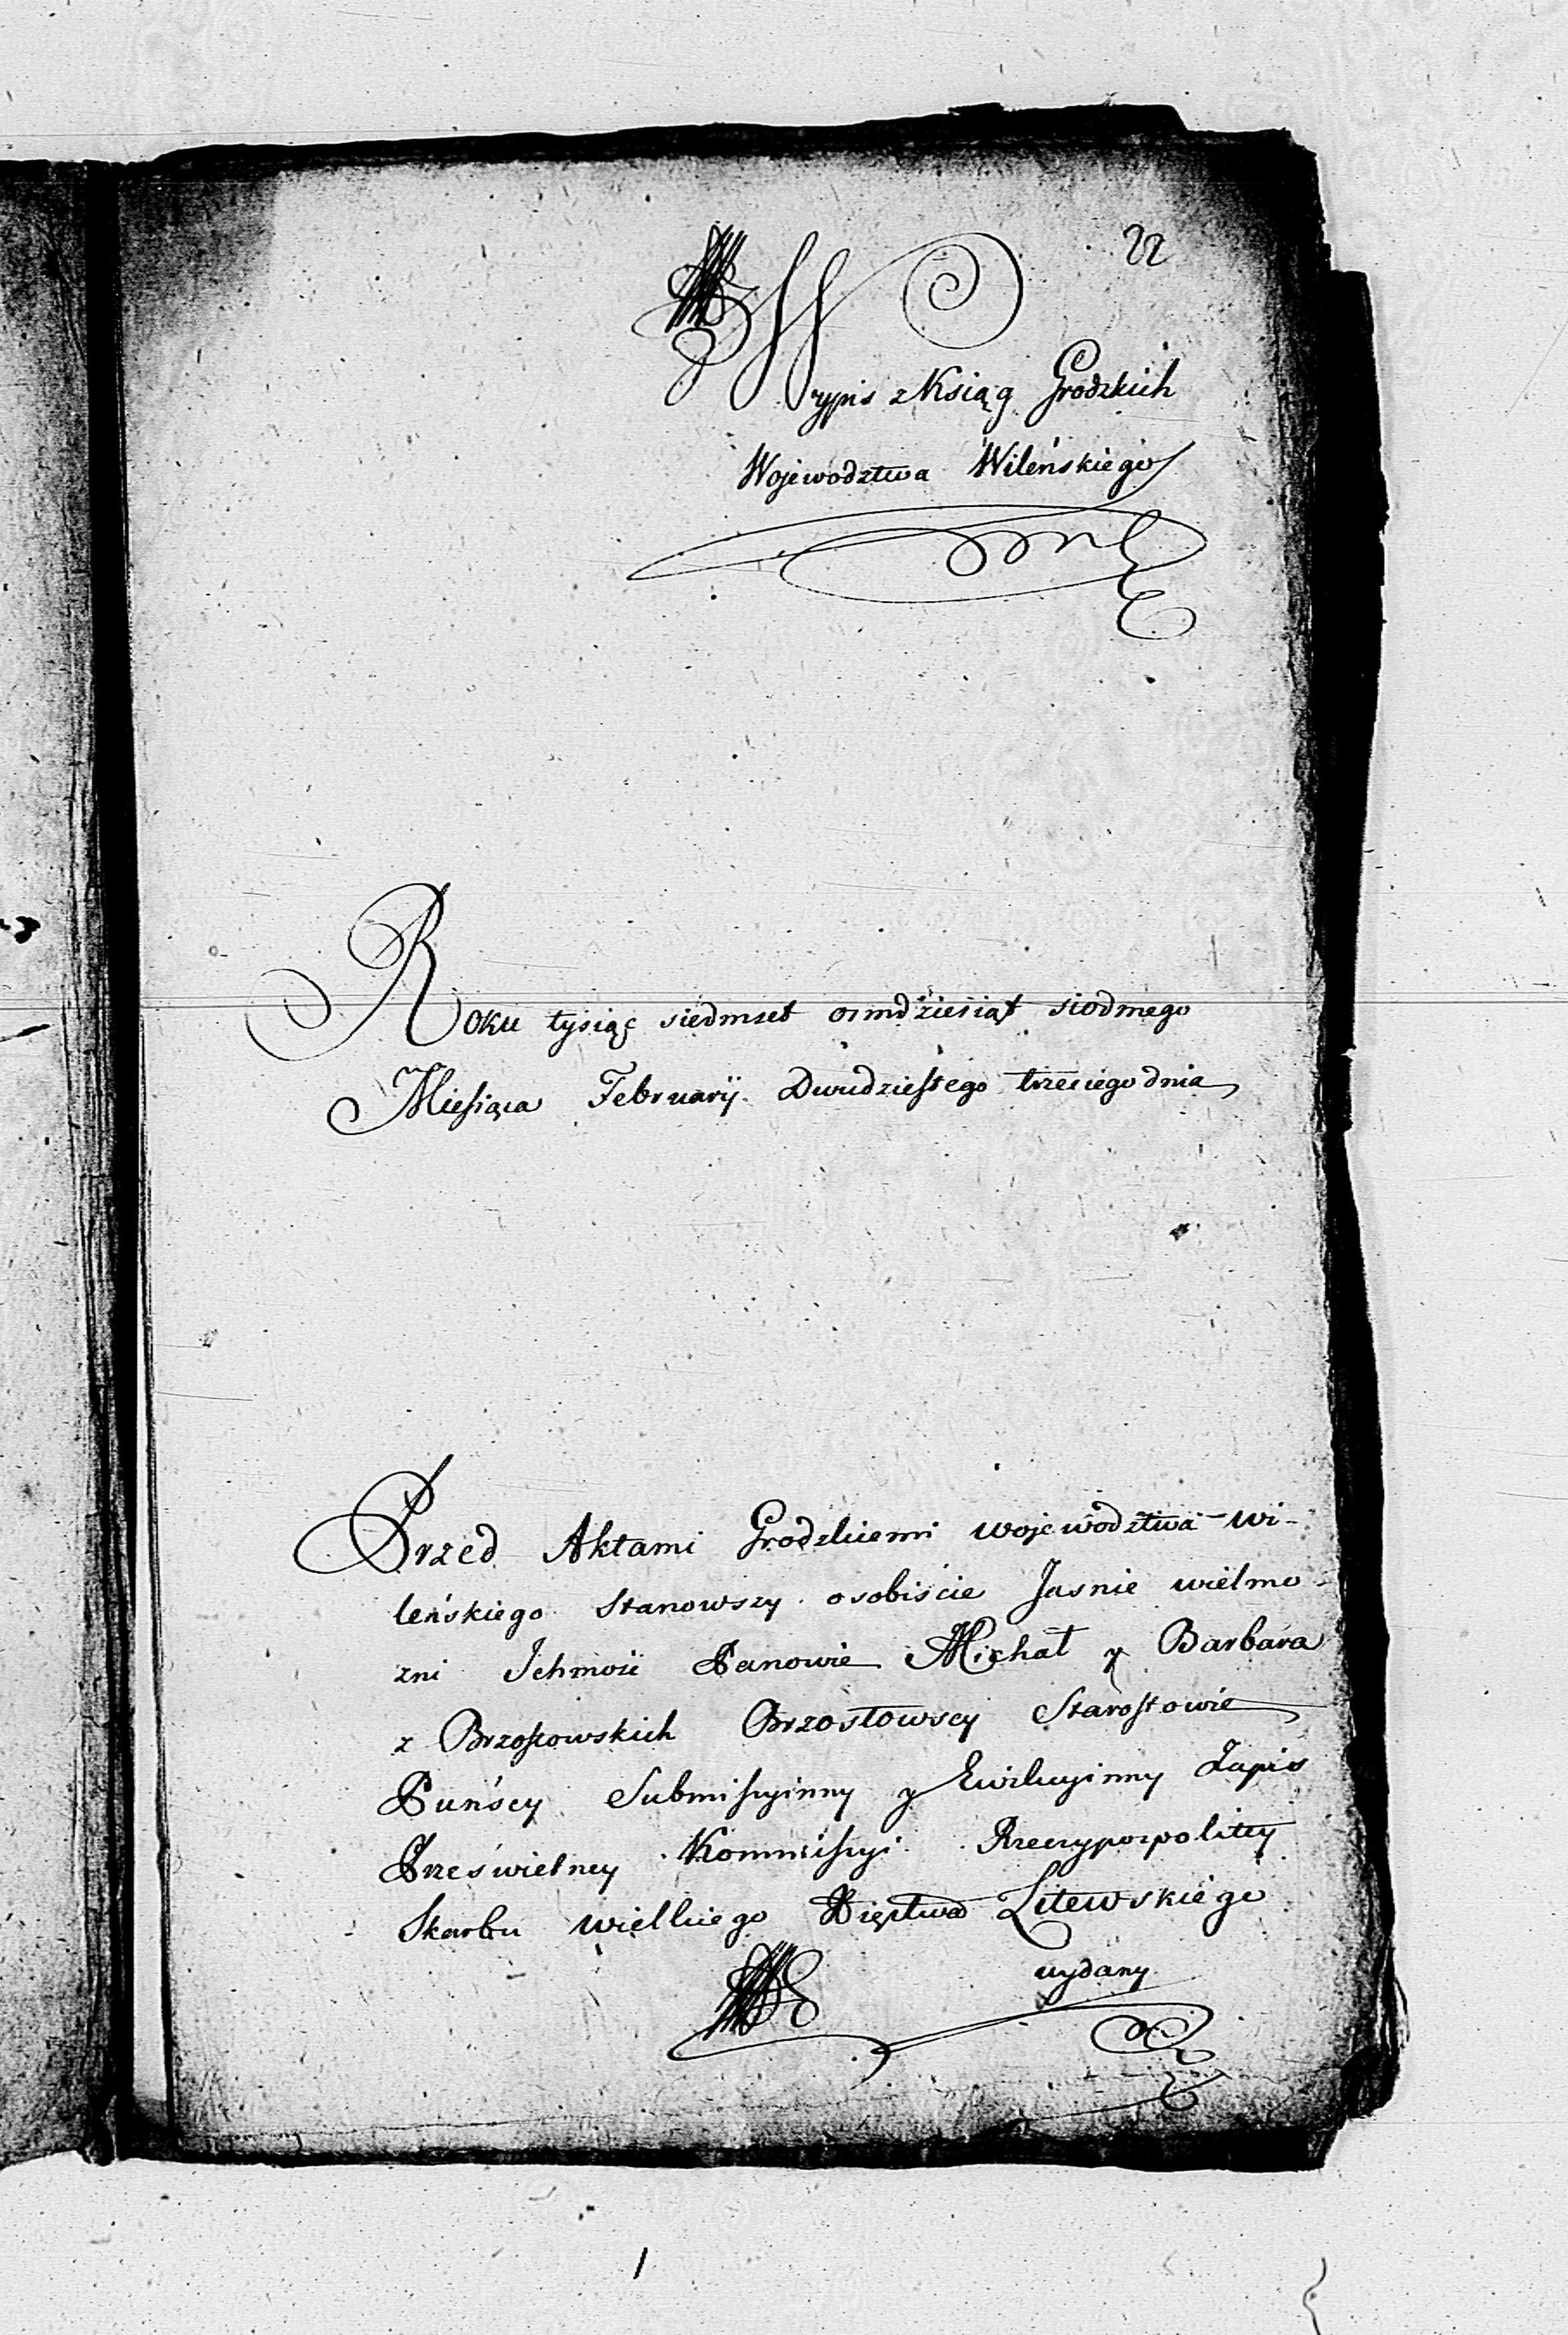 22
Wypis z Ksiąg Grodzkich
Wojewodztwa Wileńskiego
Roku tysiąc siedmset osmdziesiąt siodmego
Miesiąca Februarij Dwudziestego trzeciego dnia
Przed Aktami Grodzkiemi wojewodztwa wi-
leńskiego stanowszy osobiście Jasnie wielmo-
zni Ichmość Panowie Michał y Barbara
z Brzostowskich Brzostowscy Starostowie
Puńscy Submissyinny y Ewikcyinny Zapis
Prześwietney Kommissyi Rzeczypospolitey
Skarbu wielkiego Xięstwa Litewskiego
wydany
1